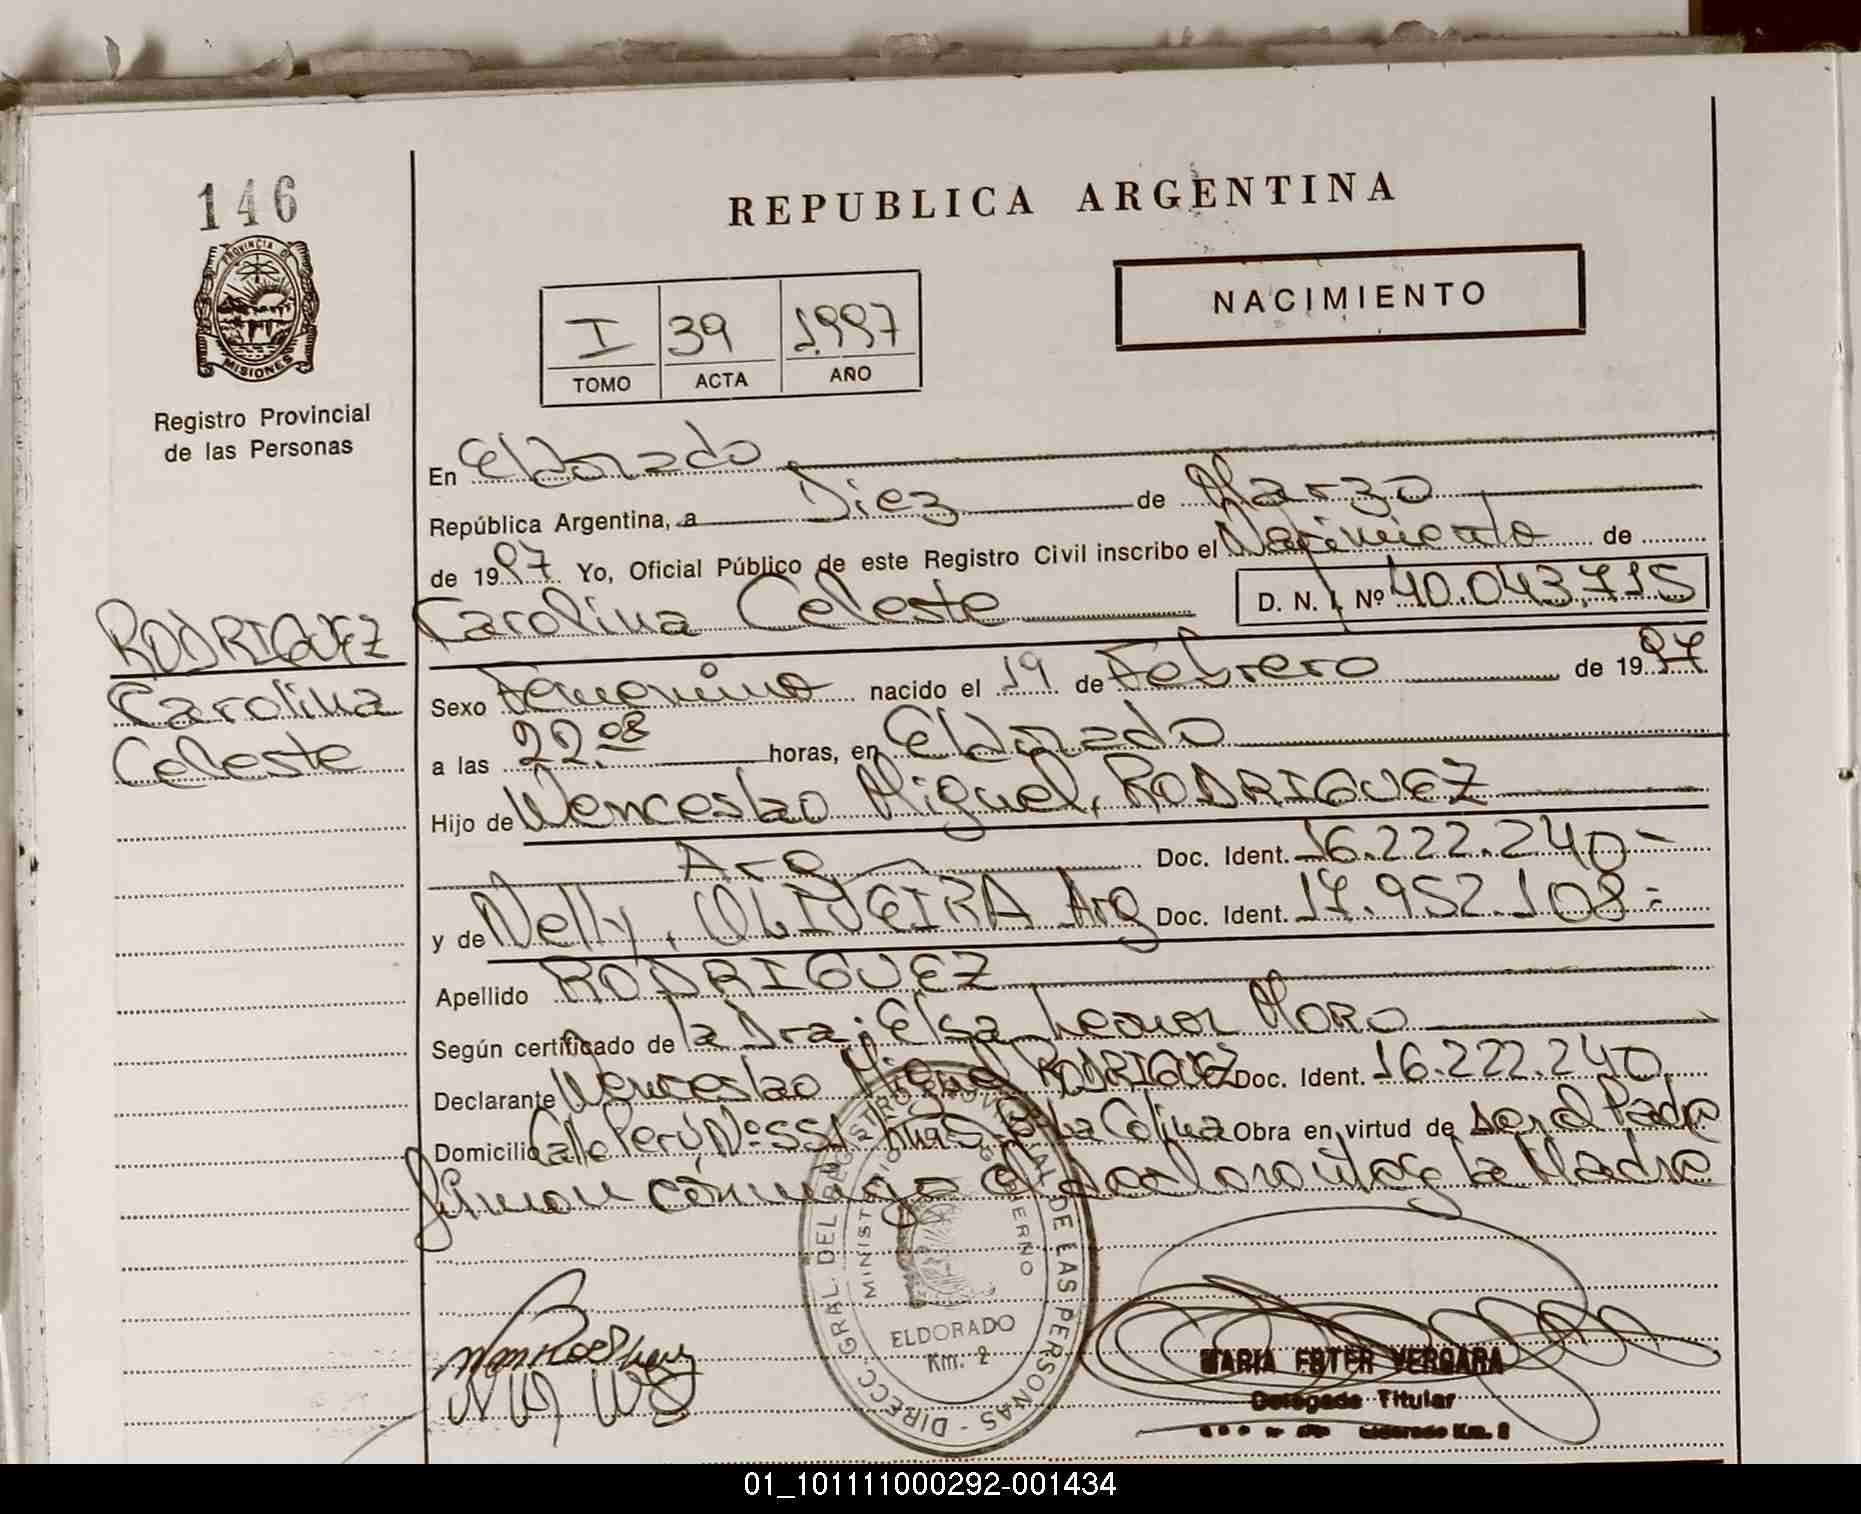 146
PROVINCIA D
MISIONES
Registro Provincial
de las Personas
REPUBLICA ARGENTINA
NACIMIENTO
I 39 1.997
TOMO ACTA AÑO
En Eldorado
República Argentina, a Diez de Marzo
de 1997 Yo, Oficial Público de este Registro Civil inscribo el Nacimiento de
RODRIGUEZ
Carolina
Celeste
Carolina Celeste D. N. I. Nº 40.043.715
Sexo Femenino nacido el 19 de Febrero de 1997
a las 22.08 horas, en Eldorado
Hijo de Wenceslao Miguel, RODRIGUEZ
Arg Doc. Ident. 16.222.240-
y de Nelly, OLIVEIRA Arg Doc. Ident. 17.952.108=
Apellido RODRIGUEZ
Según certificado de la Dra. Elsa Leonor MORO
Declarante Wenceslao Miguel RODRIGUEZ Doc. Ident. 16.222.240
Domicilio Calle Perú Nº 551 Colina Obra en virtud de ser el Padre
firman conmigo el declarante y la Madre
DIRECC. GRAL. DEL REGISTRO PROVINCIAL DE LAS PERSONAS
MINISTERIO GOBIERNO
ELDORADO
Km. 2
MARIA ESTER VERGARA
Delegada Titular
Eldorado Km. 2
01_101111000292-001434